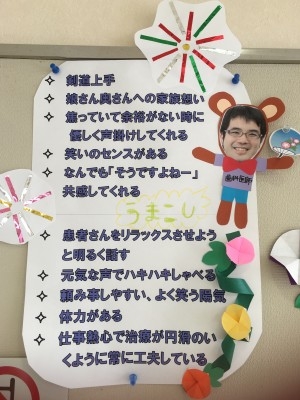 ✧ 剣道上手
✧ 娘さん奥さんへの家族想い
✧ 焦っていて余裕がない時に
優しく声掛けしてくれる
✧ 笑いのセンスがある
✧ なんでも「そうですよねー」
共感してくれる
うまこし
✧ 患者さんをリラックスさせよう
と明るく話す
✧ 元気な声でハキハキしゃべる
✧ 頼み事しやすい、よく笑う陽気
✧ 体力がある
✧ 仕事熱心で治療が円滑のい
くように常に工夫している
歯科医師